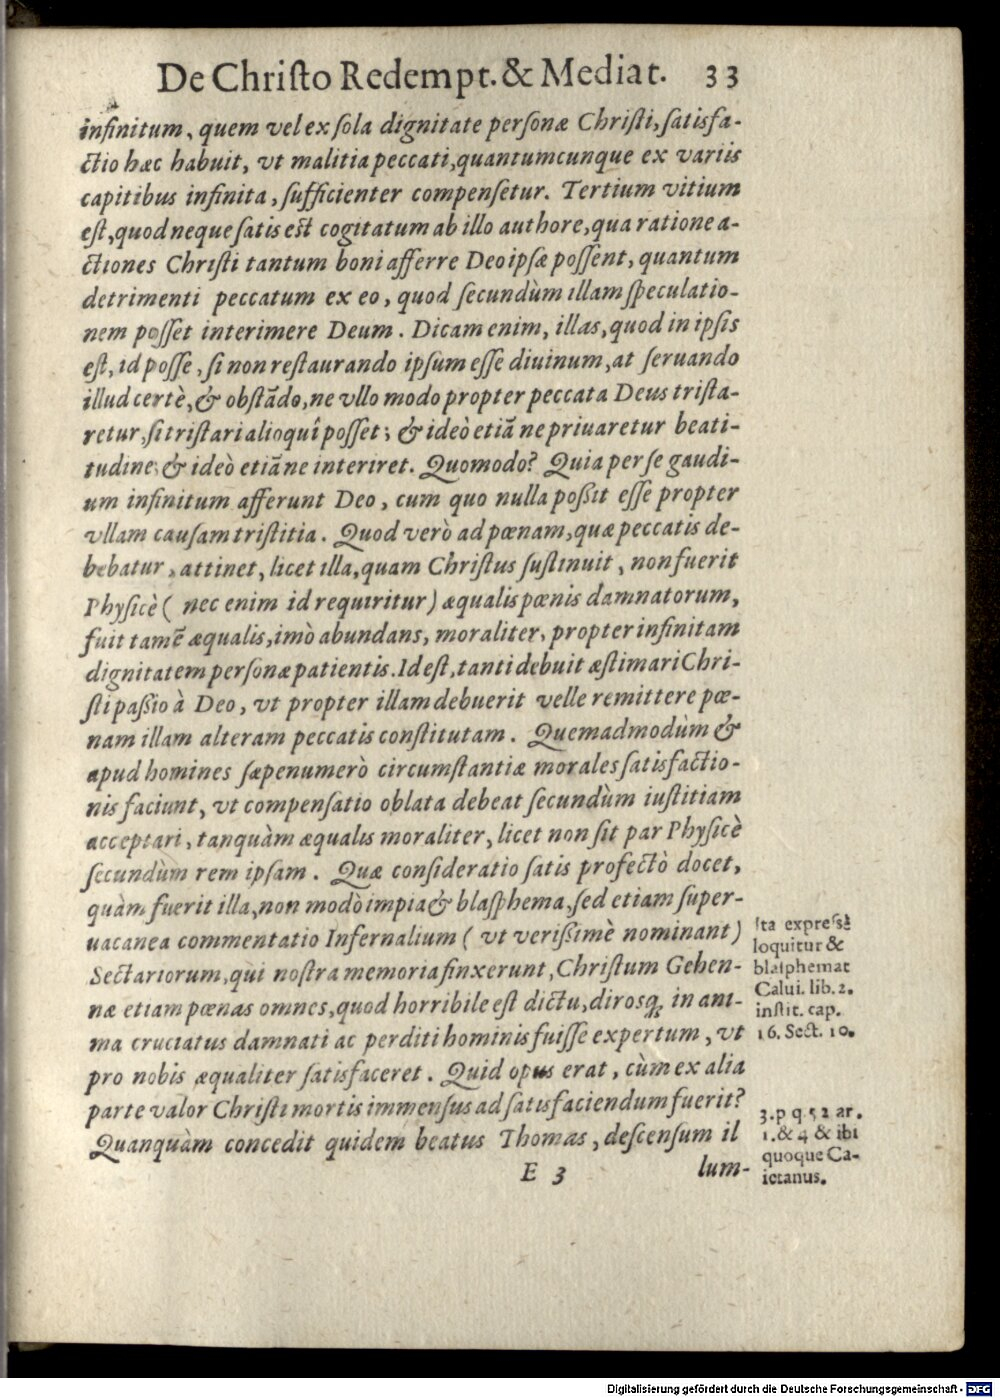 De Christo Redempt. & Mediat. 33
infinitum, quem vel ex sola dignitate personæ Christi, satisfa-
ctio hæc habuit, vt malitia peccati, quantumcunque ex variis
capitibus infinita, sufficienter compensetur. Tertium vitium
est, quod neque satis est cogitatum ab illo authore, qua ratione a-
ctiones Christi tantum boni afferre Deo ipsæ possent, quantum
detrimenti peccatum ex eo, quod secundùm illam speculatio-
nem posset interimere Deum. Dicam enim, illas, quod in ipsis
est, id posse, si non restaurando ipsum esse diuinum, at seruando
illud certè, & obstādo, ne vllo modo propter peccata Deus trista-
retur, si tristari alioquî posset; & ideò etiā ne priuaretur beati-
tudine; & ideò etiāne interiret. Quomodo? Quia per se gaudi-
um infinitum afferunt Deo, cum quo nulla poßit esse propter
vllam causam tristitia. Quod verò ad pœnam, quæ peccatis de-
bebatur, attinet, licet illa, quam Christus sustinuit, non fuerit
Physicè ( nec enim id requiritur) æqualis pœnis damnatorum,
fuit tamē æqualis, imò abundans, moraliter, propter infinitam
dignitatem personæ patientis. Id est, tanti debuit æstimari Chri-
sti paßio à Deo, vt propter illam debuerit velle remittere pœ-
nam illam alteram peccatis constitutam. Quemadmodùm &
apud homines sæpenumerò circumstantiæ morales satisfactio-
nis faciunt, vt compensatio oblata debeat secundùm iustitiam
acceptari, tanquàm æqualis moraliter, licet non sit par Physicè
secundùm rem ipsam. Quæ consideratio satis profectò docet,
quàm fuerit illa, non modò impia & blasphema, sed etiam super-
uacanea commentatio Infernalium ( vt verißimè nominant)
Sectariorum, qui nostra memoria finxerunt, Christum Gehen-
næ etiam pœnas omnes, quod horribile est dictu, dirosq́; in ani-
ma cruciatus damnati ac perditi hominis fuisse expertum, vt
pro nobis æqualiter satisfaceret. Quid opus erat, cùm ex alia
parte valor Christi mortis immensus ad satisfaciendum fuerit?
Quanquàm concedit quidem beatus Thomas, descensum il
E 3 lum-
Ita expressè
loquitur &
blasphemat
Calui. lib. 2.
instit. cap.
16. Sect. 10.
3. p q. 52 ar.
1. & 4 & ibi
quoque Ca-
ietanus.
Digitalisierung gefördert durch die Deutsche Forschungsgemeinschaft - DFG